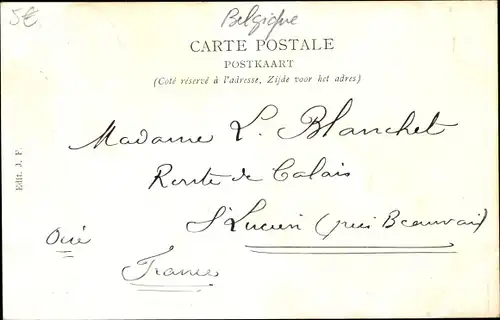 5€
Belgique
CARTE POSTALE
POSTKAART
(Coté réservé à l'adresse, Zijde voor het adres)
Madame L. Blanchet
Route de Calais
St Lucien (près Beauvais)
Oise
France
Edit. J. F.